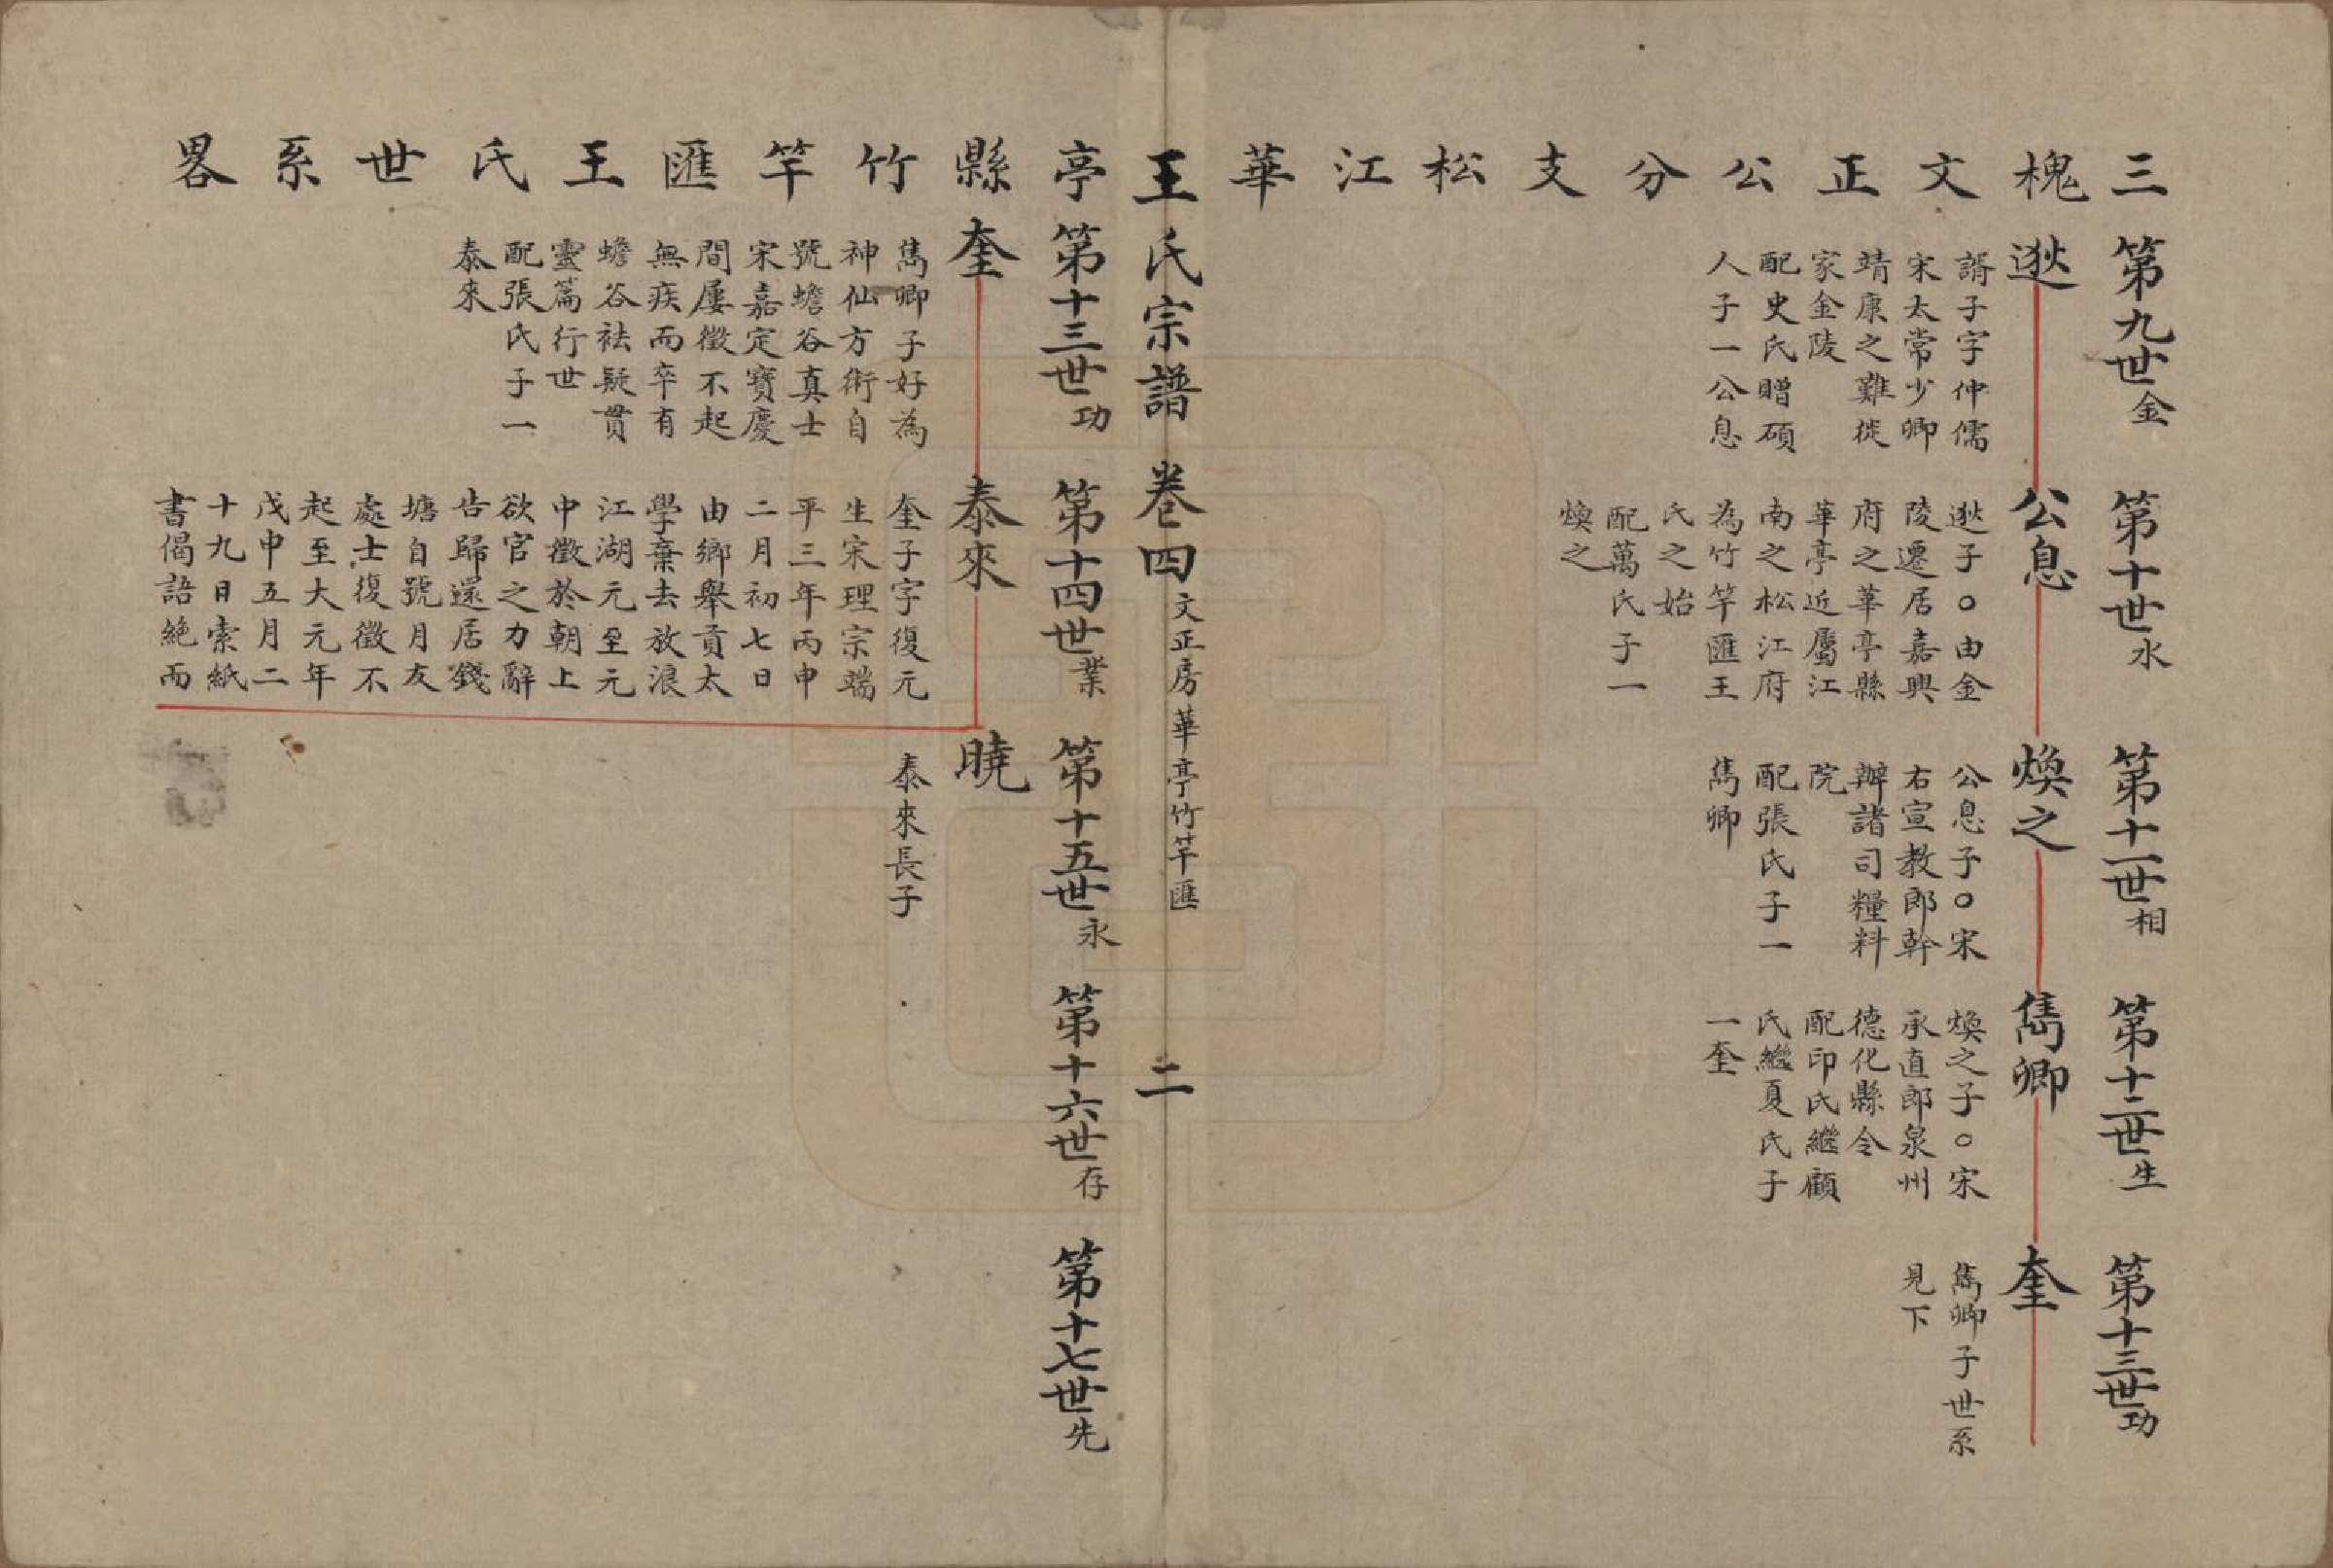 三槐文正公分支松江華亭縣竹竿匯王氏世系畧
第九世金
逖
諝子字仲儒
宋太常少卿
靖康之難徙
家金陵
配史氏贈碩
人子一公息
第十世水
公息
逖子○由金
陵遷居嘉興
府之華亭縣
華亭近屬江
南之松江府
為竹竿匯王
氏之始
配萬氏子一
煥之
第十一世相
煥之
公息子○宋
右宣教郎幹
辦諸司糧料
院
配張氏子一
雋卿
第十二世生
雋卿
煥之子○宋
承直郎泉州
德化縣令
配印氏繼顧
氏繼夏氏子
一奎
第十三世功
奎
雋卿子世系
見下
王氏宗譜 卷四 文正房 華亭竹竿匯 二
第十三世功
奎
雋卿子好為
神仙方術自
號蟾谷真士
宋嘉定寶慶
間屢徵不起
無疾而卒有
蟾谷祛疑貫
靈篇行世
配張氏子一
泰來
第十四世業
泰來
奎子字復元
生宋理宗端
平三年丙申
二月初七日
由鄉舉貢太
學棄去放浪
江湖元至元
中徵於朝上
欲官之力辭
告歸還居錢
塘自號月友
處士復徵不
起至大元年
戊申五月二
十九日索紙
書偈語絶而
第十五世永
曉
泰來長子
第十六世存
第十七世先